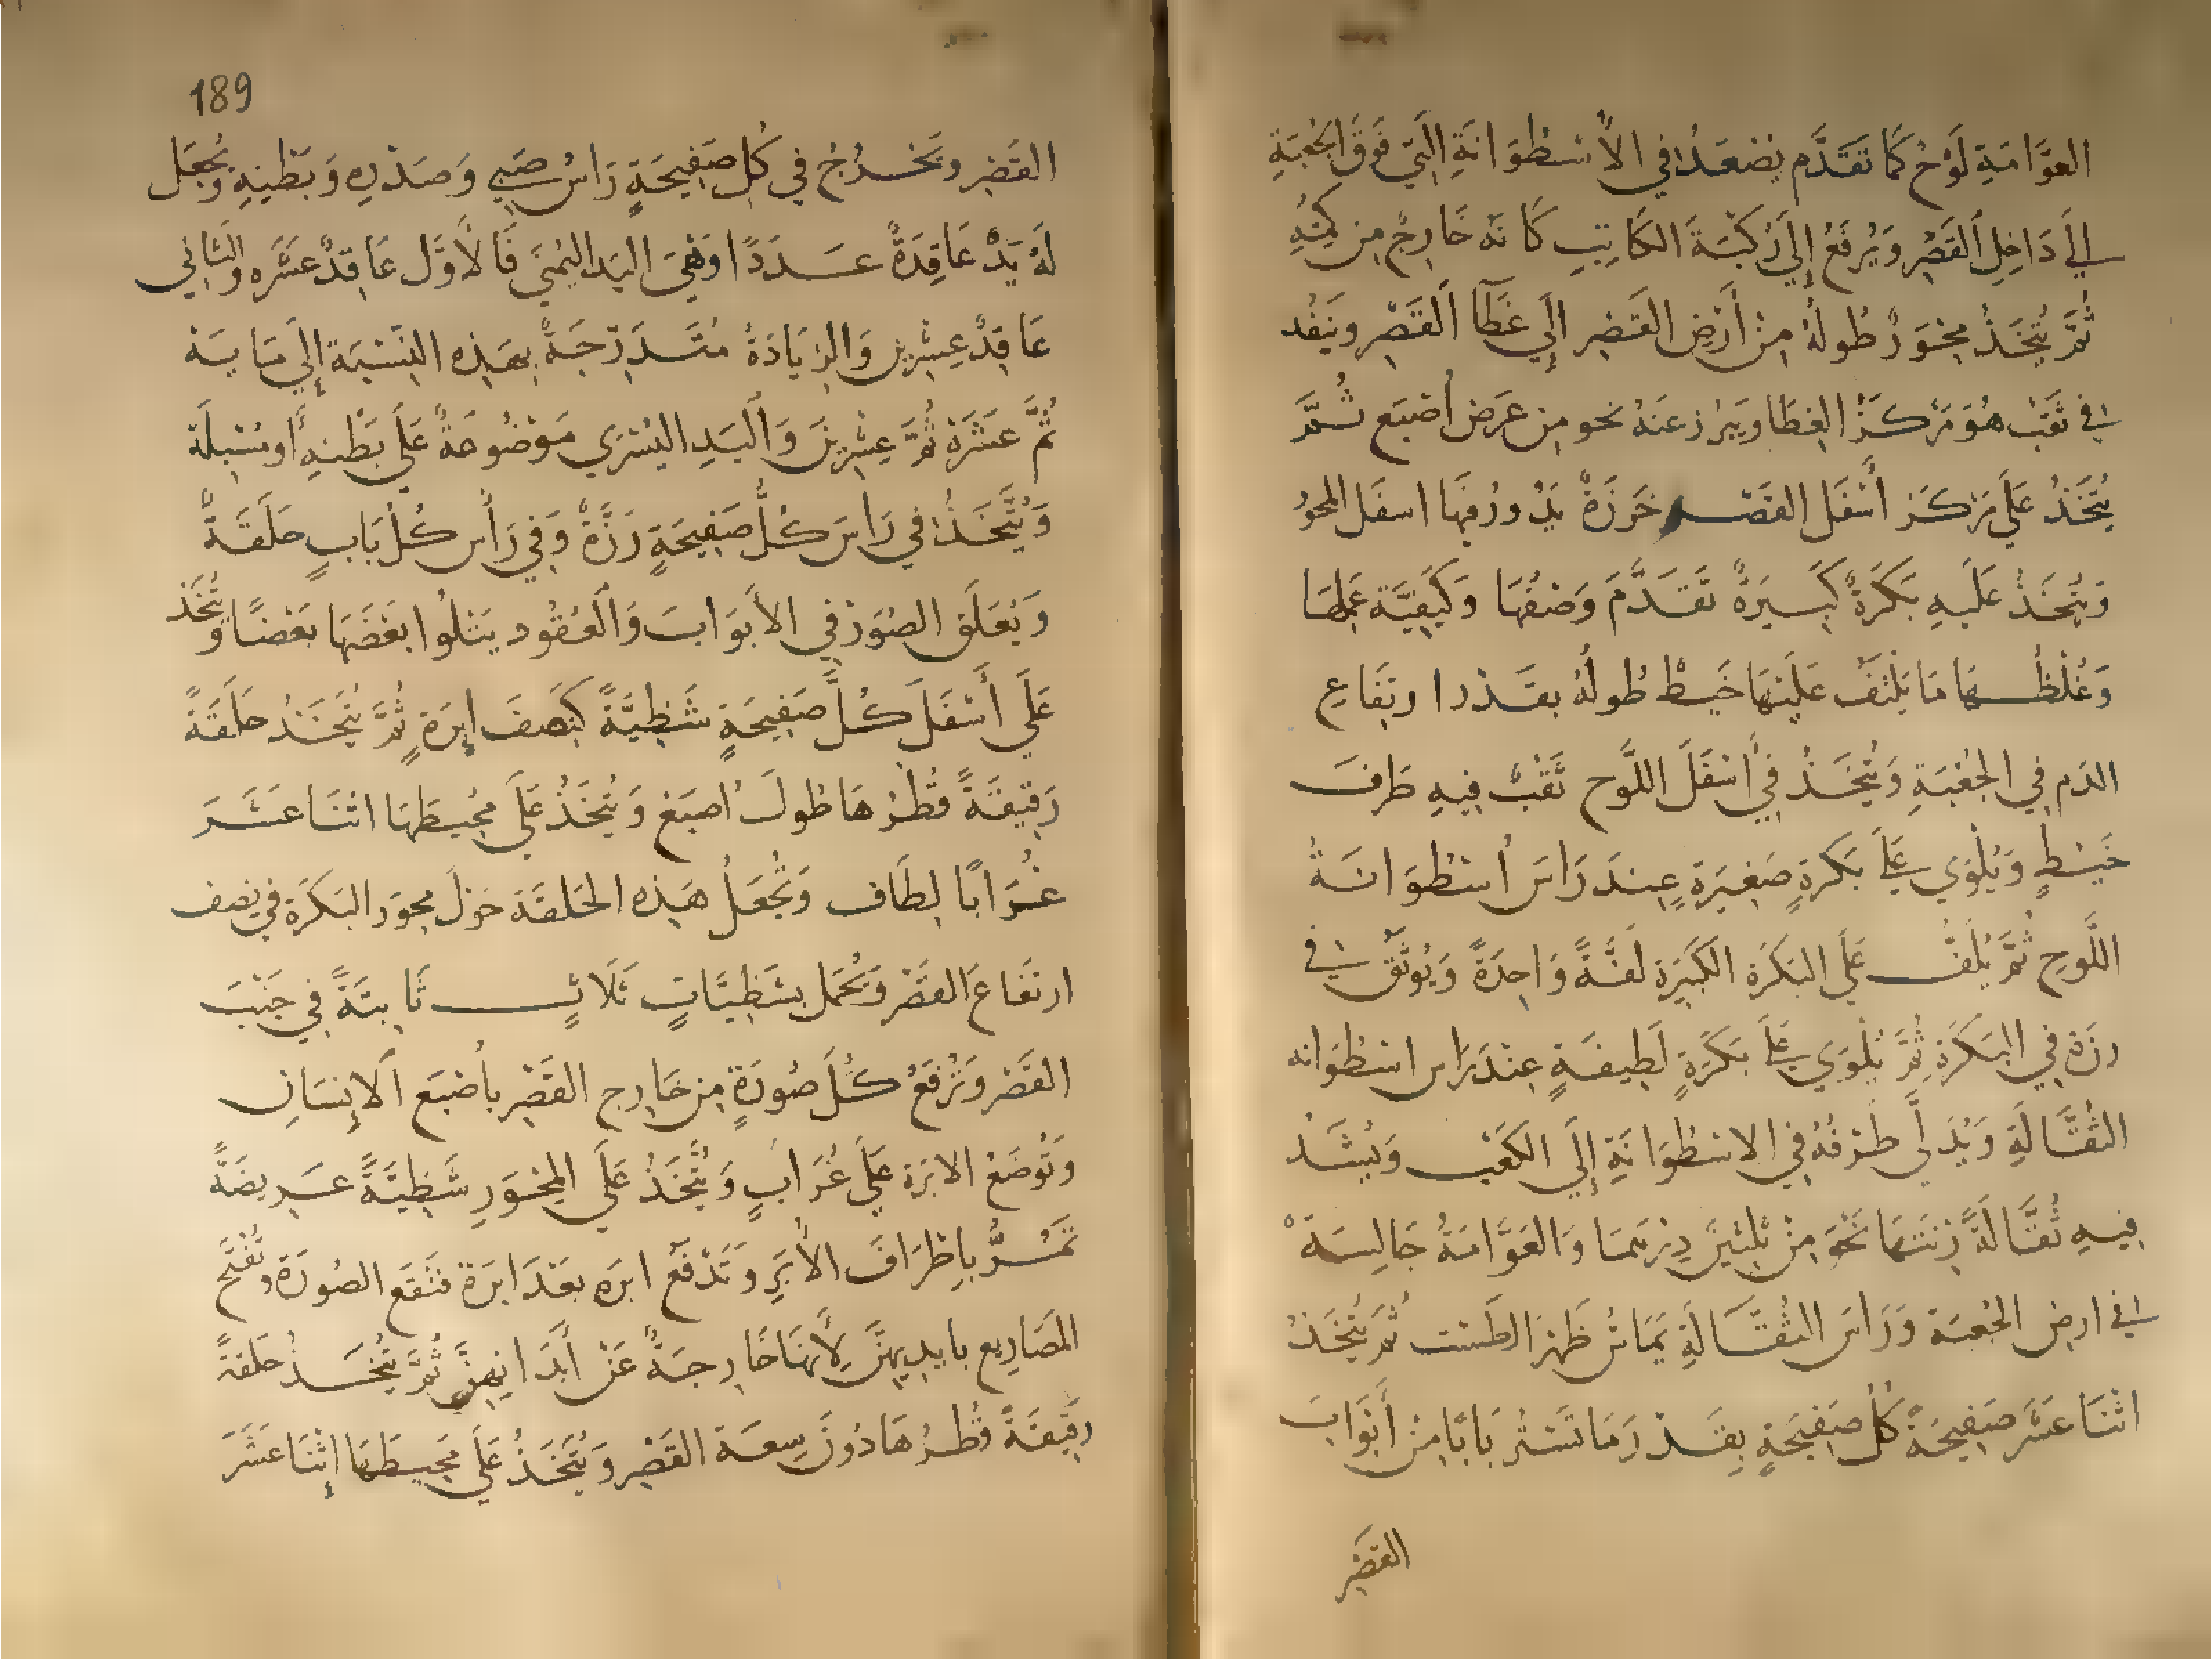 العَوَّامَةِ لَوْحٌ كَمَا تَقَدَّم يَصْعَدُ في الأُسْطُوَانَةِ الَّتي فَوْقَ الجُعْبَةِ
إلَى دَاخِلِ القَصْرِ وَيُرفَعُ إلَى رُكْبَةَ الكَاتِبِ كَانَه خَارِجٌ مِن كُمِّهِ
ثُمَّ يُتَّخَذُ مِحْوَرٌ طُولُهُ مِنْ أَرْضِ القَصْرِ إلَى غَطَآ القَصْرِ وينَفُد
في ثَقْبٍ هُوَ مَرْكَزُ الغِطَا ويَبرُز عَنهُ نحو مِن عَرض اُصْبَع ثُمَّ
يُتَّخَذُ عَلَى مَرْكَز أَسْفَل القَصْر خَرزَةٌ يَدُورُ فيهَا اسفَل المحوَر
وَيُتَّخَذُ عَلَيهِ بَكَرَةٌ كَبيرَةٌ تَقَدَّمَ وَصْفُهَا وَكَيفِيَّة عَمَلهَا
وَغُلْظُهَا مَا يَلْتَفُّ عَلَيْهَا خَيطٌ طُولُهُ بقَدْر ارتِفَاعِ
الدَم فِي الجُعْبَةِ وَيُتَّخَذُ فِي أَسْفَلَ اللَّوحِ ثَقْبٌ فِيهِ طَرفَ
خَيْطٍ وَيُلْوَي عَلَى بَكرَةٍ صَغِيرَةٍ عِندَ رَاسَ أُسْطُوَانَةُ
اللَّوحِ ثُمَّ يُلَفُّ عَلَى البَكَرَة الكَبِيَرة لَفَّةً وَاحِدَةً وَيُوثَقُ في
رزَة فِي البَكَرَةِ ثُمَّ يُلْوَي عَلَى بَكَرَةٍ لَطِيفَةٍ عِنْدَ رَاس اسْطُوَانه
الثُقَّالَةِ وَيُدَلَّى طَرْفُهُ فِي الاسْطُوَانَةِ إلَى الكَعْبِ وَيُشَدُّ
فِيهِ ثُقَّالَةً زِنَتهَا نَحْوَ مِنْ ثَلثينَ دِرْهَمَا وَالعَوَّامَةُ جَالِسَةٌ
في ارضِ الجُعبَة وَرَاسَ الثُقَّالَةِ يَمَاسُّ ظَهْرَ الطَسْت ثُمَّ يُتَّخَذُ
اثْنَا عَشَر صَفِيحَةً كُلُّ صَفِيحَةٍ بِقَدْرِ مَا تَسْتُر بَابًا مِنْ أَبْوَابَ
القَصْرِ
189
القَصْرِ ويَخْرُجُ في كُل صَفِيحَةٍ رَاسُ صَبيٍّ وَصَدْرِهِ وَبَطْنِهِ وَيُجعَل
لَهُ يَدٌ عَاقِدَةٌ عَدَدًا وَهْيَ اليَد اليُمْنَى فَالأَوَّل عَاقِدٌ عَشَره وَالثَانِي
عَاقِدٌ عِشْرِين وَالزيَادَةُ مُتَدَرِّجَةٌ بهَذِه النِسْبَة إلَي مَايَة
ثُمَّ عَشَرَة ثُمَّ عِشْرِينَ وَاليَدِ اليُسْرَي مَوْضُوعَةٌ عَلَى بَطْنِهِ أَو مُسْبلَة
وَيُتَّخَذُ في رَاسَ كُلِّ صَفِيحَةٍ رَزَّةٌ وَفِي رَأْس كُلّ بَابٍ حَلَقَةٌ
وَيُعَلَق الصُوَرْ فِي الأَبوَابَ وَالعُقُود يَتلُوا بَعْضَهَا بَعْضًا وَيُتَّخَذ
عَلَي أَسْفَلَ كُلِّ صَفِيحَةٍ شَظِيَّةً كَنِصفَ إبرَةٍ ثُمَّ يُتَّخَذُ حَلَقَةً
رَقيقَةً قُطرُهَا طُولَ اُصبَع وَيُتَّخَذُ عَلَى مُحِيطَهَا اثنَا عَشَرَ
غُرَابًا لِطَاف وَتُجْعَلُ هَذِه الحَلقَة حَوْلَ محوَر البَكَرَة فِي نِصف
ارتفَاعَ القَصْر وَتُحْمَل بشَظِيَّاتٍ ثَلَاثٍ ثَابِتَةً فِي جَنْبَ
القَصْر وَتُرْفَعُ كُلَّ صُورَةٍ مِن خَارِج القَصْرِ بأُصْبَع الإنسَانِ
وَتُوضَعُ الابرَة عَلَى غُرَابٍ وَيُتَّخَذُ عَلَى المِحْوَرِ شَظِيَّةً عَريضَةً
تَمُرُّ بأَطْرَافَ الأُبَرِ وَتَدْفَعُ ابرَه بَعْدَ ابرَة فَتَقَع الصُورَة وتُفْتَح
المَصَارِيع بايدِيهِنَّ لِأَنهَا خَارِجَةٌ عَنْ أَبدَانِهِنَّ ثُمَّ يُتَّخَذُ حَلَقَةً
رَقيقَةً قُطرُهَا دُونَ سِعَة القَصْر وَيُتَّخَذُ عَلَى مُحِيطَهَا إثْنَا عَشَرَ